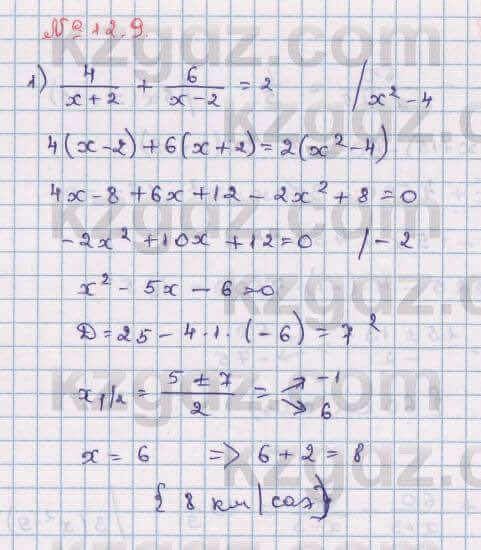 № 12.9.
1) 4/(x+2) + 6/(x-2) = 2 | x² - 4
4(x-2)+6(x+2)=2(x²-4)
4x-8+6x+12-2x²+8=0
-2x²+10x+12=0 |-2
x²-5x-6=0
D=25-4·1·(-6)=7²
x₁/₂ = (5±7)/2 = ↗ -1 ↘ 6
x=6 => 6+2=8
{8 км/сағ}
kzgdz.com